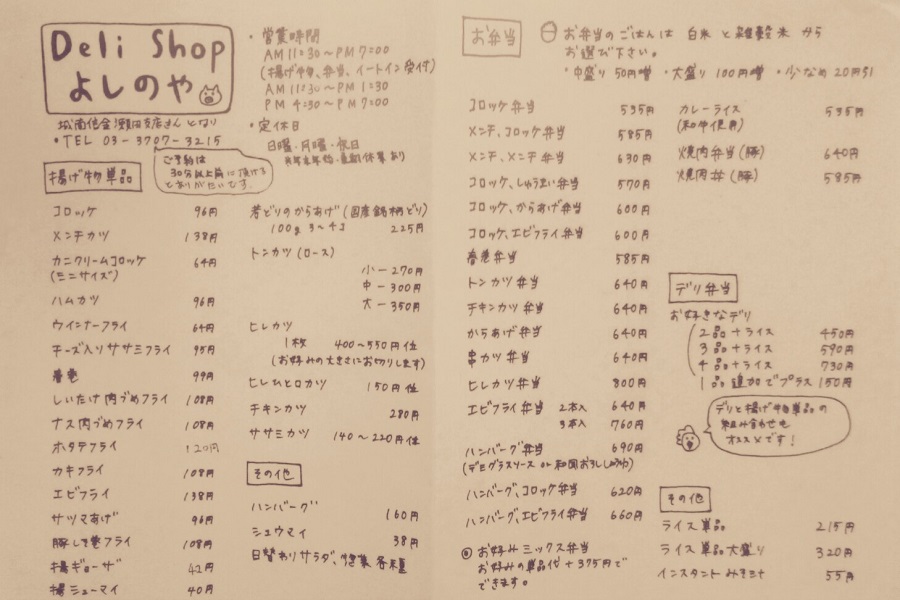 Deli Shop
よしのや
城南信金瀬田支店さんとなり
・TEL 03-3707-3215
ご予約は
30分以上前に頂けると
とありがたいです。
・営業時間
AM 11:30～PM 7:00
(揚げ物、弁当、イートイン受付)
AM 11:30～PM 1:30
PM 4:30～PM 7:00
・定休日
日曜・月曜・祝日
揚げ物単品
コロッケ 96円
メンチカツ 138円
カニクリームコロッケ 64円
(ミニサイズ)
ハムカツ 96円
ウインナーフライ 64円
チーズ入りササミフライ 95円
春巻 99円
しいたけ肉づめフライ 108円
ナス肉づめフライ 108円
ホタテフライ 120円
カキフライ 108円
エビフライ 138円
サツマあげ 96円
豚しそ巻フライ 108円
揚ギョーザ 42円
揚シューマイ 40円
若どりのからあげ(国産銘柄どり)
100g 3～4コ 225円
トンカツ(ロース)
小－270円
中－300円
大－350円
ヒレカツ
1枚 400～550円位
(お好みの大きさにお切りします)
ヒレひとロカツ 150円位
チキンカツ 280円
ササミカツ 140～220円位
その他
ハンバーグ 160円
シュウマイ 38円
日替わりサラダ、惣菜各種
お弁当
お弁当のごはんは 白米 と 雑穀米 から
お選び下さい。
・中盛り 50円増 ・大盛り 100円増 ・少なめ 20円引
コロッケ弁当 535円
メンチ、コロッケ弁当 585円
メンチ、メンチ弁当 630円
コロッケ、しゅうまい弁当 570円
コロッケ、からあげ弁当 600円
コロッケ、エビフライ弁当 600円
春巻弁当 585円
トンカツ弁当 640円
チキンカツ弁当 640円
からあげ弁当 640円
串カツ弁当 640円
ヒレカツ弁当 800円
エビフライ弁当 2本入 640円
3本入 760円
ハンバーグ弁当 690円
(デミグラスソース or 和風おろししょうゆ)
ハンバーグ、コロッケ弁当 620円
ハンバーグ、エビフライ弁当 660円
◎お好みミックス弁当
お好みの単品代+375円で
できます。
カレーライス 535円
(和牛使用)
焼肉弁当(豚) 640円
焼肉丼(豚) 585円
デリ弁当
お好きなデリ
2品+ライス 450円
3品+ライス 590円
4品+ライス 730円
1品追加でプラス150円
デリと揚げ物単品の
組み合わせも
オススメです!
その他
ライス単品 215円
ライス単品大盛り 320円
インスタントみそ汁 55円